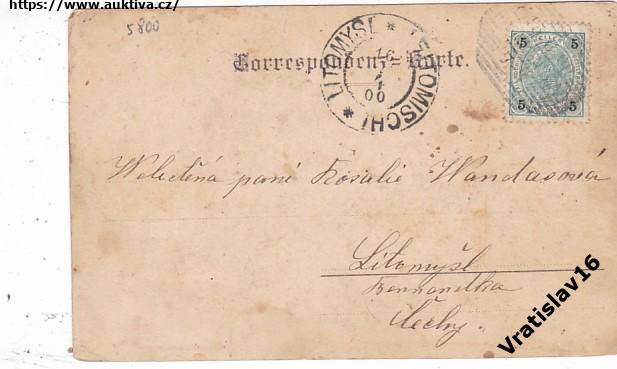 https://www.auktiva.cz/
5800
Correspondenz=Karte.
LITOMYŠL * LEITOMISCHL *
16
1
00
5 HELLER 5
5 5
Veletěná paní Rosalie Wandasová
Litomyšl
Čechy.
Vratislav16